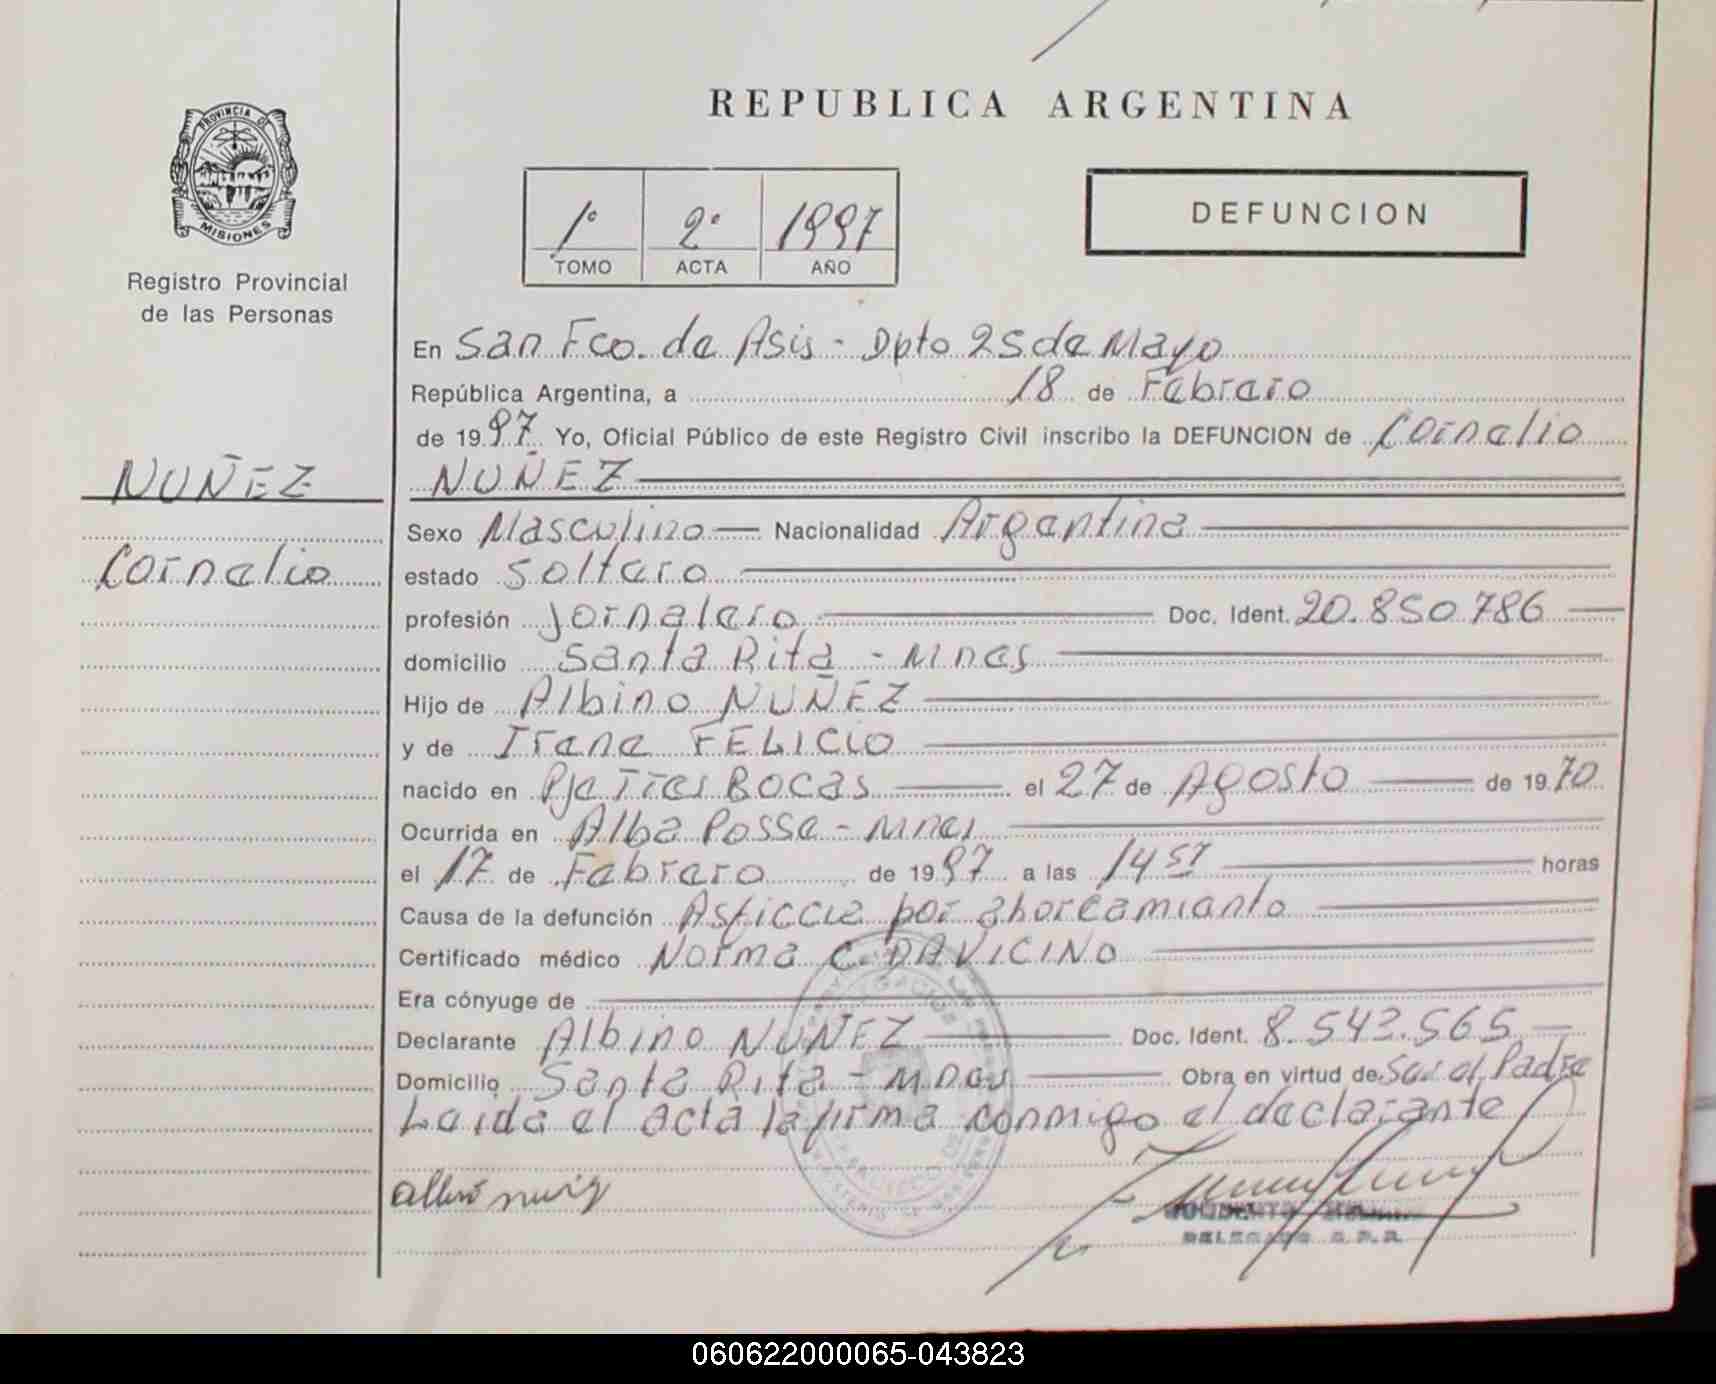 REPUBLICA ARGENTINA
PROVINCIA DE
MISIONES
Registro Provincial
de las Personas
1º 2º 1997
TOMO ACTA AÑO
DEFUNCION
En San Fco. de Asis - Dpto 25 de Mayo
República Argentina, a 18 de Febrero
de 1997 Yo, Oficial Público de este Registro Civil inscribo la DEFUNCION de Cornelio
NUÑEZ
NUÑEZ
Cornelio
Sexo Masculino Nacionalidad Argentina
estado Soltero
profesión Jornalero Doc. Ident. 20.850.786
domicilio Santa Rita - Mnes
Hijo de Albino NUÑEZ
y de Irene FELICIO
nacido en Pje Tres Bocas el 27 de Agosto de 1970
Ocurrida en Alba Posse - Mnes
el 17 de Febrero de 1997 a las 14 horas
Causa de la defunción Asficcia por ahorcamiento
Certificado médico Norma C. DAVICINO
Era cónyuge de
Declarante Albino NUÑEZ Doc. Ident. 8.543.565
Domicilio Santa Rita - Mnes Obra en virtud de Ser el Padre
Leida el acta la firma conmigo el declarante
DELEGADO R.P.P.
060622000065-043823